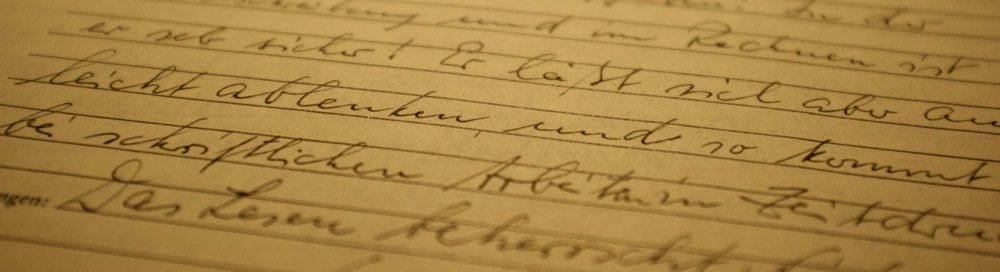 und im Rechnen ist
er sehr sicher! Er läßt sich aber
leicht ablenken und so kommt
bei schriftlichen Arbeiten in
Das Lesen beherrscht